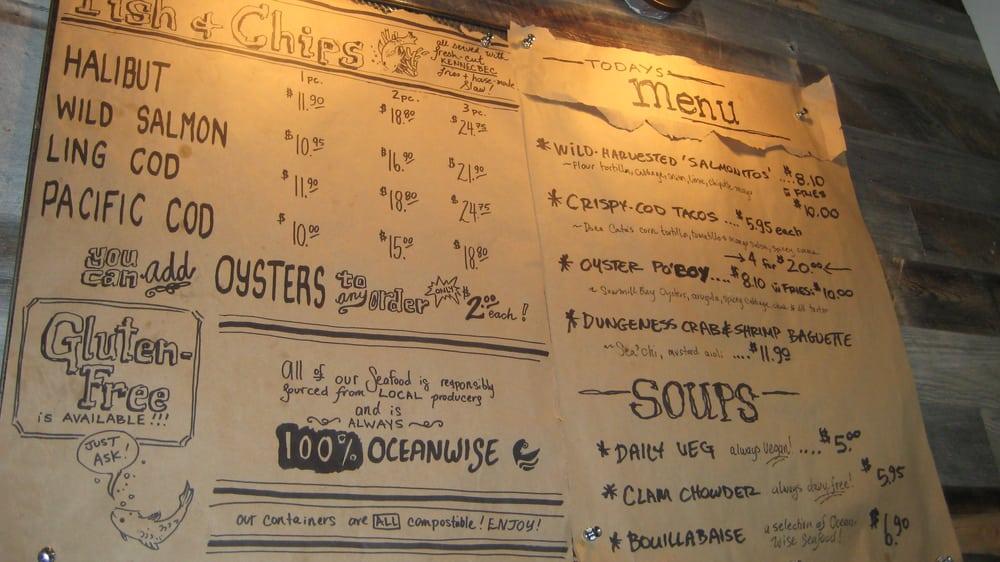 Fish & Chips
all served with
fresh-cut
KENNEBEC
fries + house-made
slaw!
1 pc. 2 pc. 3 pc.
HALIBUT $11.90 $18.80 $24.75
WILD SALMON $10.95 $16.90 $21.90
LING COD $11.90 $18.80 $24.75
PACIFIC COD $10.00 $15.00 $18.80
you can add OYSTERS to any order ONLY $2.00 each!
Gluten-
Free
IS AVAILABLE!!!
JUST
ASK!
All of our Seafood is responsibly
sourced from LOCAL producers
and is
ALWAYS
100% OCEANWISE
our containers are ALL compostible! ENJOY!
TODAYS
Menu
* WILD-HARVESTED 'SALMONITOS' .... $8.10
~ Flour tortilla, cabbage, lime, chipotle mayo
w FRIES
$10.00
* CRISPY-COD TACOS ... $5.95 each
corn tortilla, tomatillo salsa, spicy
→ 4 for $20.00 ←
* OYSTER PO'BOY.... $8.10 w FRIES: $10.00
~ Sawmill Bay Oysters, arugula, spicy cabbage
* DUNGENESS CRAB & SHRIMP BAGUETTE
mustard aioli .... $11.90
SOUPS
* DAILY VEG always vegan! .... $5.00
* CLAM CHOWDER always dairy-free! $5.95
* BOUILLABAISE a selection of Ocean
Wise Seafood! $6.90